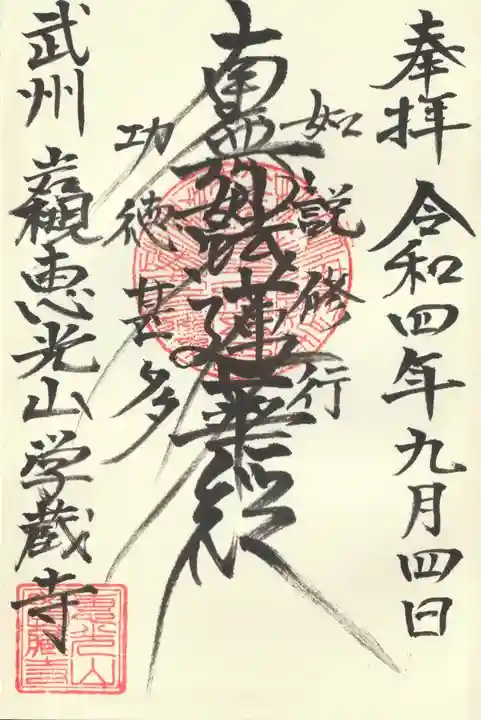 奉拝 令和四年九月四日
如説修行
南無妙法蓮華経
功徳甚多
武州 岩槻 恵光山 学蔵寺
恵光山